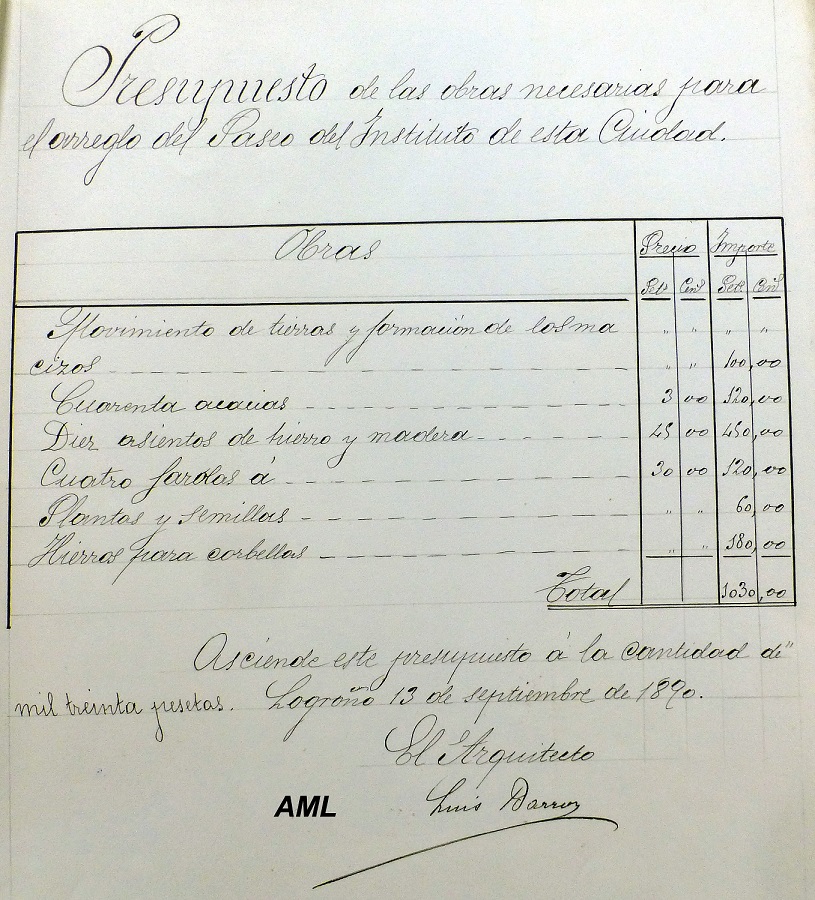 Presupuesto de las obras necesarias para
el arreglo del Paseo del Instituto de esta Ciudad.
Obras Precio Importe
Pets Cents Pets Cents
Movimiento de tierras y formación de los ma " " " "
cizos " " 100,00
Cuarenta acacias 3 00 120,00
Diez asientos de hierro y madera 45 00 450,00
Cuatro farolas á 30 00 120,00
Plantas y semillas " " 60,00
Hierros para corbellas " " 180,00
Total 1030,00
Asciende este presupuesto á la cantidad de"
mil treinta pesetas. Logroño 13 de septiembre de 1890.
El Arquitecto
AML Luis Barrón